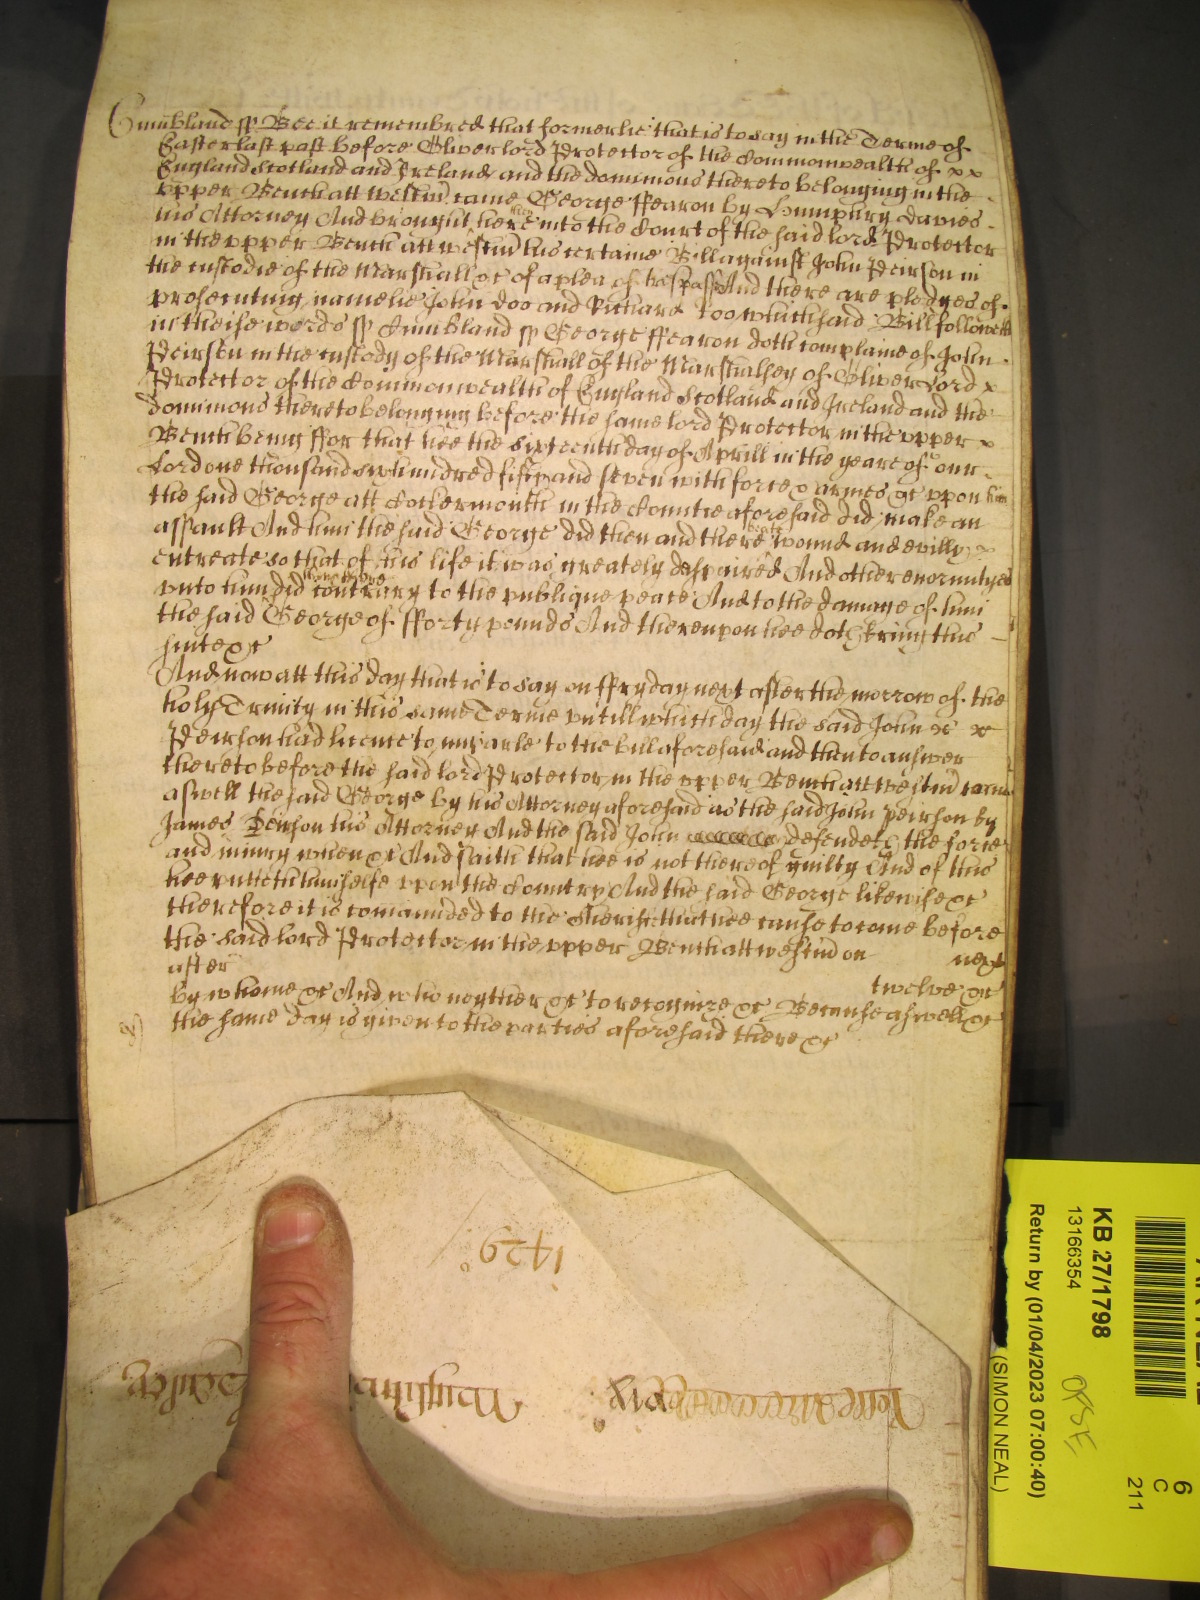 Cumbland ss Bee it remembred that formerlie that is to say in the Terme of
Easter last past before Oliver lord Protector of the Commonwealth of x x
England Scotland and Ireland and the dominions thereto belonging in the
vpper Bench att westm came George ffearon by Humphry Davies
his Attorney And brought here then into the Court of the said lord Protector
in the vpper Bench att westm his certaine Bill against John Peirson in
the custodie of the Marshall &c of a plea of trespasse And there are pledges of
prosecuting namelie John Doo and Richard Roo which said Bill followeth
in theise words ss Cumbland ss George ffearon doth complaine of John
Peirson in the custody of the Marshall of the Marshalsey of Oliver Lord x
Protector of the Commonwealth of England Scotland and Ireland and the
dominions thereto belonging before the same lord Protector in the vpper x
Bench being ffor that hee the sixteenth day of Aprill in the yeare of our
Lord one thousand six hundred fifty and seven with force & armes &c vpon him
the said George att Cockermouth in the Countie aforesaid did make an
assault And him the said George did then and there beate wound and evilly x
entreate so that of his life it was greately despaired And other enormityes
vnto him did then & there contrary to the publique peace And to the damage of him
the said George of fforty pounds And therevpon hee doth bring this
suite &c
And now att this day that is to say on ffryday next after the morrow of the
holy Trinity in this same Terme vntill which day the said John x x
Peirson had licence to imparle to the bill aforesaid and then to answer
thereto before the said lord Protector in the vpper Bench att westm came
aswell the said George by his Attorney aforesaid as the said John Peirson by
James his Attorney And the said John defendeth the force
and iniury when &c And saith that hee is not thereof guilty And of this
hee putteth himselfe vpon the Country And the said George likewise &c
therefore it is comanded to the Sheriffe that hee cause to come before
the said lord Protector in the vpper Bench att westm on next
after twelve &c
by whome &c And who neyther &c to recognize &c Because aswell &c
the same day is given to the parties aforesaid there &c
1429
KB 27/1798
13166354
Return by (01/04/2023 07:00:40)
(SIMON NEAL)
6
C
211